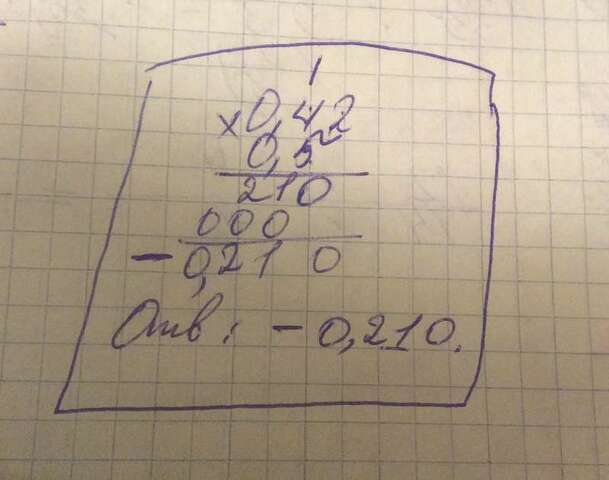 1
×0,42
0,5
210
000
-0,210
Отв: -0,210.